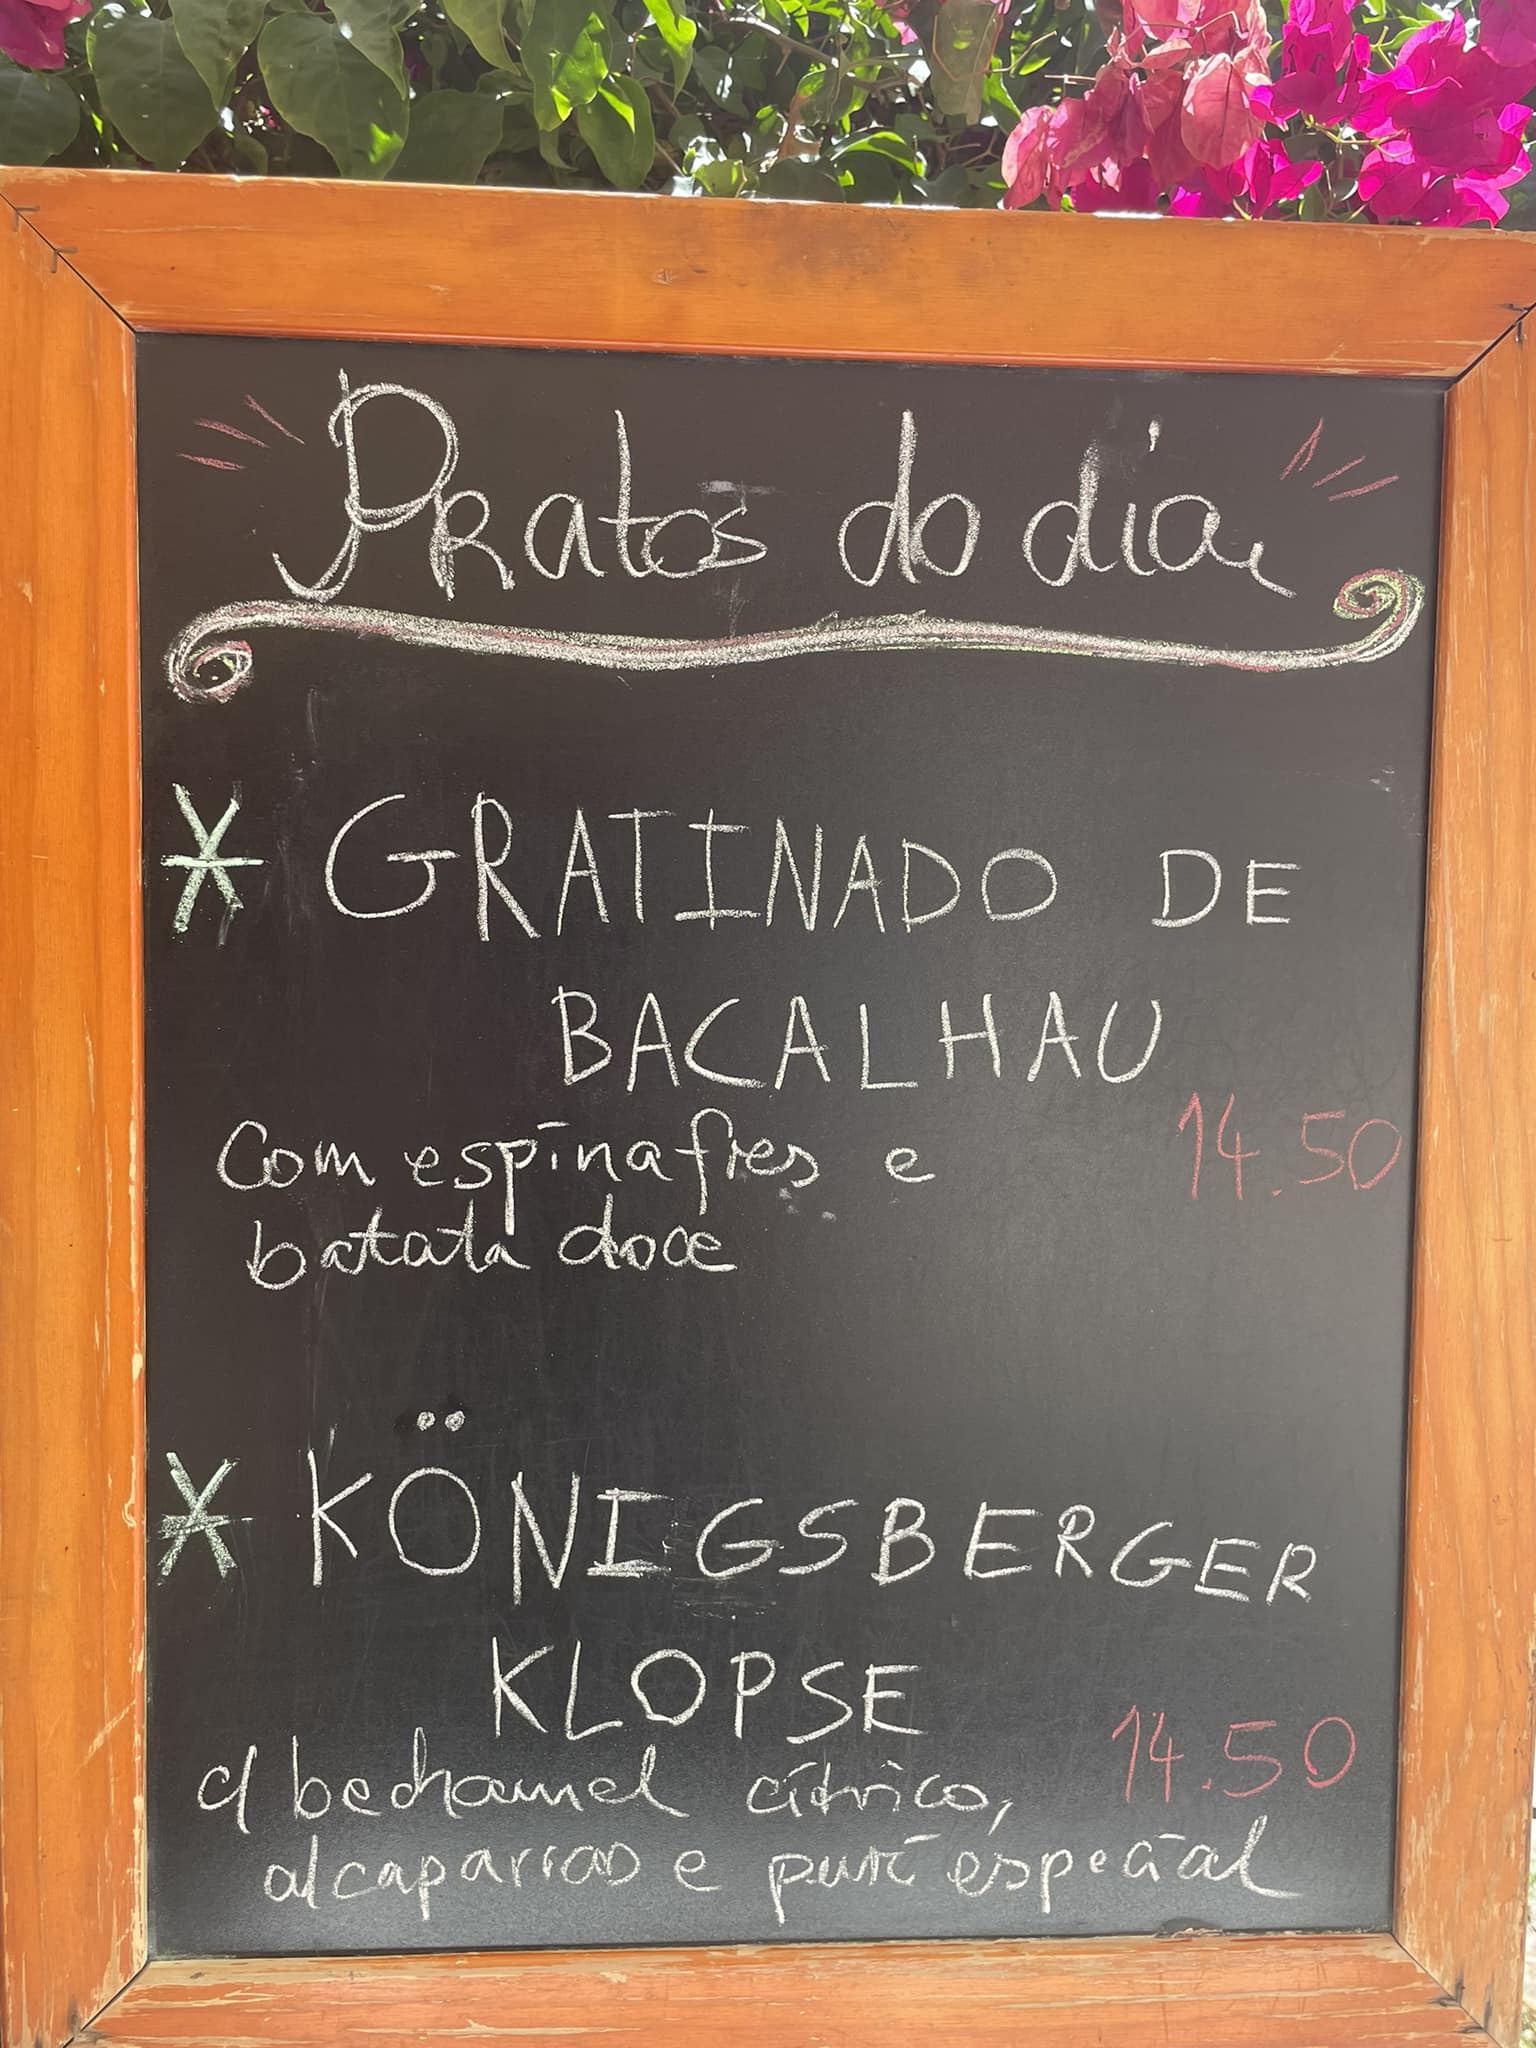 Pratos do dia
* GRATINADO DE
BACALHAU
Com espinafres e 14.50
batata doce
* KÖNIGSBERGER
KLOPSE
c/ bechamel cítrico, 14.50
alcaparras e puré especial